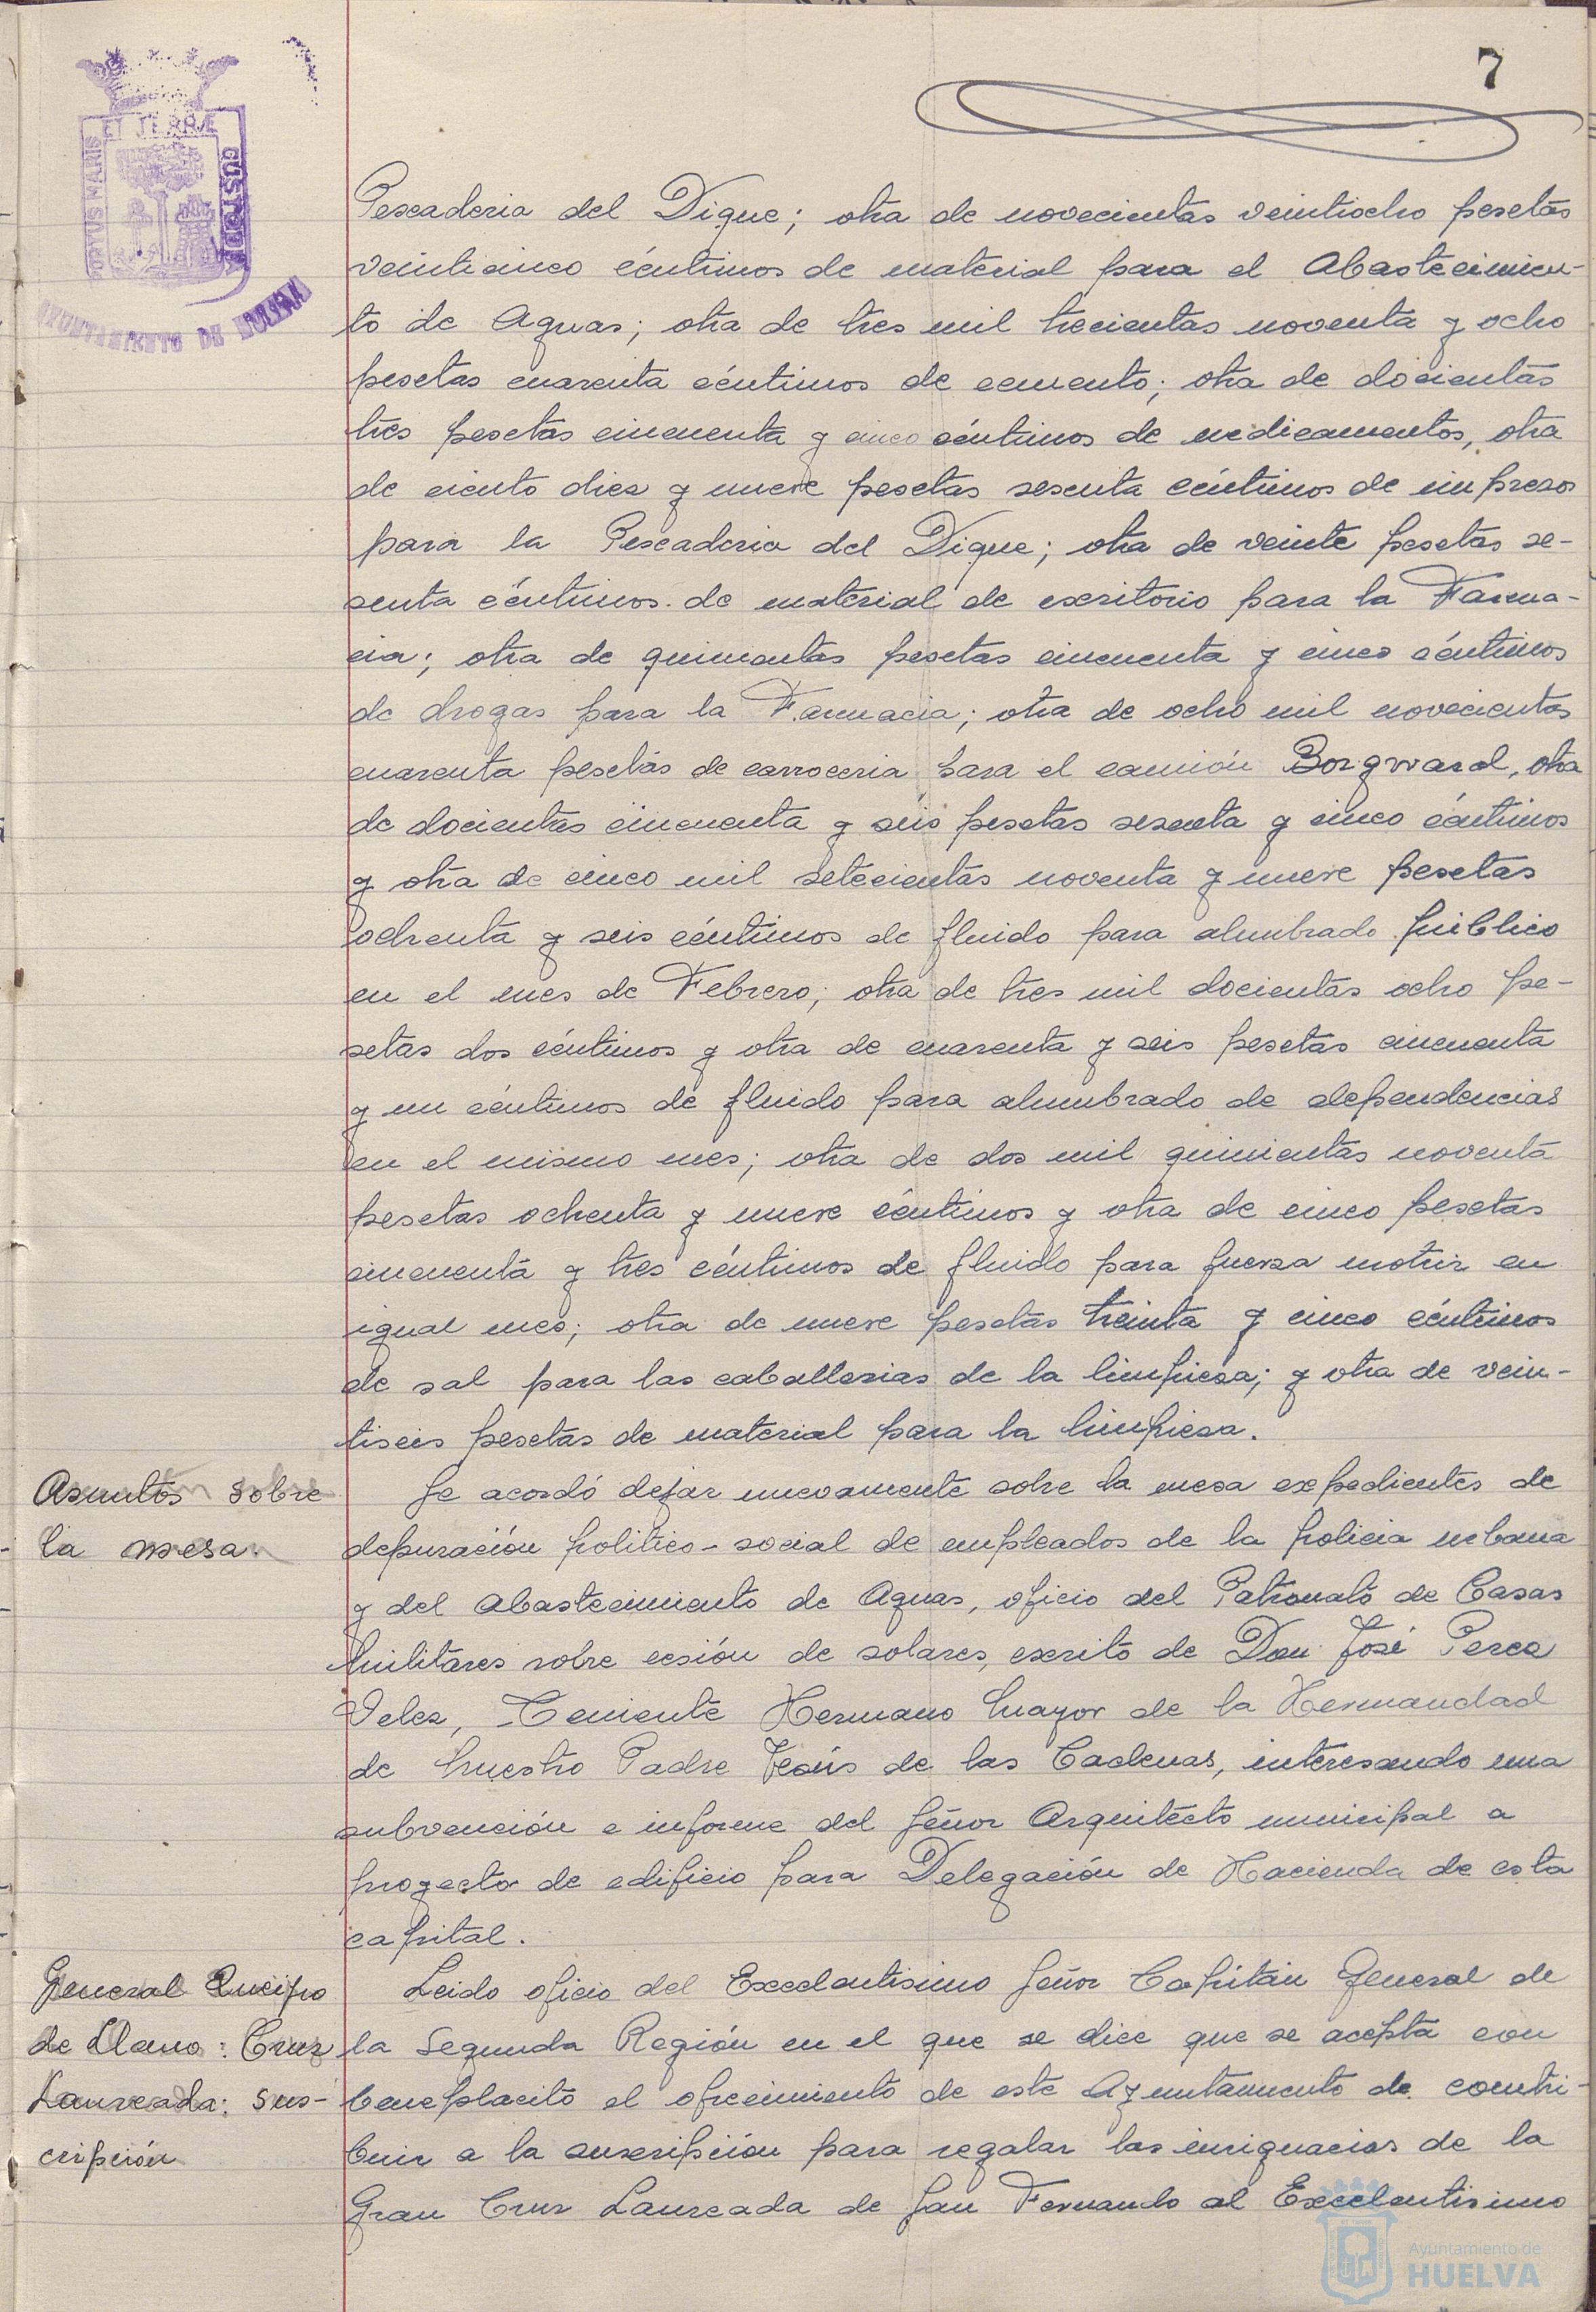 7
ET TERRE
PORTUS MARIS
CUSTODIA
AYUNTAMIENTO DE HUELVA
Pescaderia del Dique; otra de novecientas veintiocho pesetas
veinticinco céntimos de material para el Abastecimien-
to de Aguas; otra de tres mil trecientas noventa y ocho
pesetas cuarenta céntimos de cemento; otra de docientas
tres pesetas cincuenta y cinco céntimos de medicamentos, otra
de ciento diez y nueve pesetas sesenta céntimos de impresos
para la Pescaderia del Dique; otra de veinte pesetas se-
senta céntimos de material de escritorio para la Farma-
cia; otra de quinientas pesetas cincuenta y cinco céntimos
de drogas para la Farmacia; otra de ocho mil novecientas
cuarenta pesetas de carroceria para el camión Borgward, otra
de docientas cincuenta y seis pesetas sesenta y cinco céntimos
y otra de cinco mil setecientas noventa y nueve pesetas
ochenta y seis céntimos de fluido para alumbrado público
en el mes de Febrero; otra de tres mil docientas ocho pe-
setas dos céntimos y otra de cuarenta y seis pesetas cincuenta
y un céntimos de fluido para alumbrado de dependencias
en el mismo mes; otra de dos mil quinientas noventa
pesetas ochenta y nueve céntimos y otra de cinco pesetas
cincuenta y tres céntimos de fluido para fuerza motriz en
igual mes; otra de nueve pesetas treinta y cinco céntimos
de sal para las caballerias de la limpieza; y otra de vein-
tiseis pesetas de material para la limpieza.
Asuntos sobre
la mesa.
Se acordó dejar nuevamente sobre la mesa expedientes de
depuración politico-social de empleados de la policia urbana
y del Abastecimiento de Aguas, oficio del Patronato de Casas
Militares sobre cesión de solares, escrito de Don José Perez
Velez, Teniente Hermano Mayor de la Hermandad
de Nuestro Padre Jesús de las Cadenas, interesando una
subvención e informe del Señor Arquitecto municipal a
proyecto de edificio para Delegación de Hacienda de esta
capital.
General Queipo
de Llano: Cruz
Laureada: sus-
cripción
Leido oficio del Excelentisimo Señor Capitán General de
la Segunda Región en el que se dice que se acepta con
beneplacito el ofrecimiento de este Ayuntamiento de contri-
buir a la suscripción para regalar las insignacias de la
Gran Cruz Laureada de San Fernando al Excelentisimo
Ayuntamiento de
HUELVA